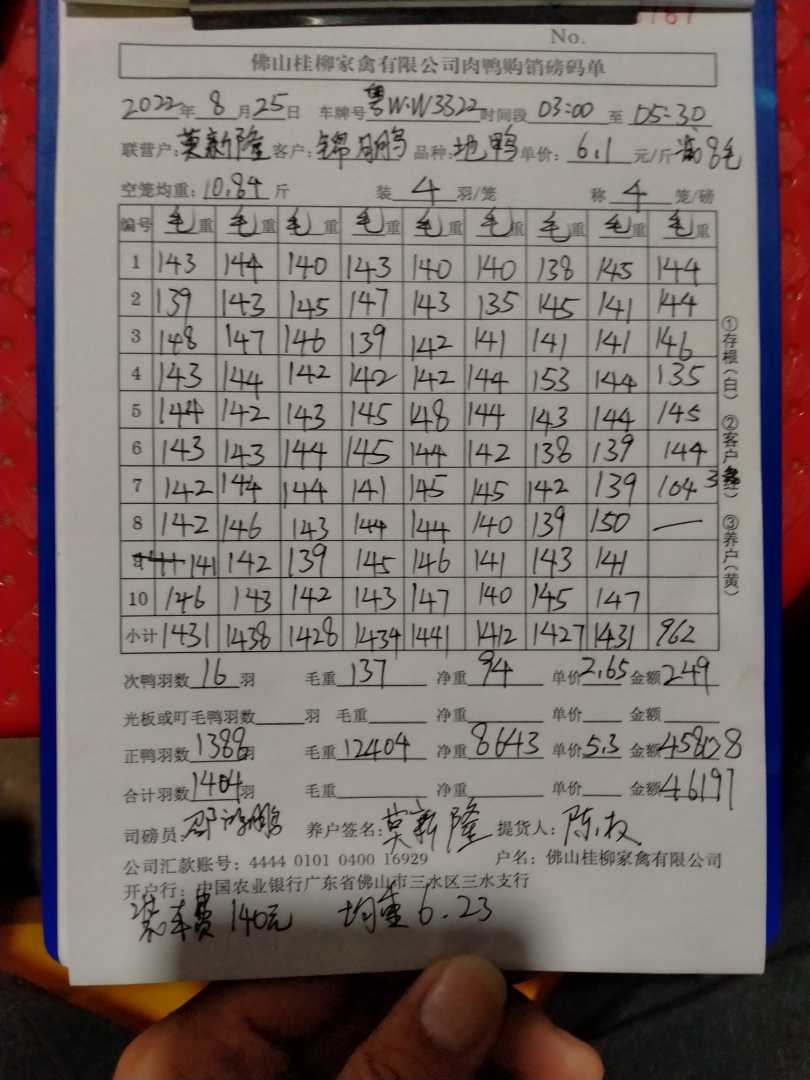 No.
佛山桂柳家禽有限公司肉鸭购销磅码单
2022年8月25日 车牌号粤W·W3322时间段03:00至05:30
联营户:莫新隆客户: 品种:地鸭单价:6.1元/斤
空笼均重:10.84斤 装4羽/笼 称4笼/磅
编号 毛重 毛重 毛重 毛重 毛重 毛重 毛重 毛重 毛重
1 143 144 140 143 140 140 138 145 144
2 139 143 145 147 143 135 145 141 144
3 148 147 146 139 142 141 141 141 146
4 143 144 142 142 142 144 153 144 135
5 144 142 143 145 148 144 143 144 145
6 143 143 144 145 144 142 138 139 144
7 142 144 144 141 145 145 142 139 104
8 142 146 143 144 144 140 139 150 —
9 141 142 139 145 146 141 143 141
10 146 143 142 143 147 140 145 147
小计 1431 1438 1428 1434 1441 1412 1427 1431 962
①存根(白) ②客户(红) ③养户(黄)
次鸭羽数16羽 毛重137 净重94 单价2.65 金额249
光板或叮毛鸭羽数 羽 毛重 净重 单价 金额
正鸭羽数1388羽 毛重12404 净重8643 单价5.3 金额45808
合计羽数1404羽 毛重 净重 单价 金额46197
司磅员: 养户签名:莫新隆 提货人:陈权
公司汇款账号:4444 0101 0400 16929 户名:佛山桂柳家禽有限公司
开户行:中国农业银行广东省佛山市三水区三水支行
装车费140元 均重6.23